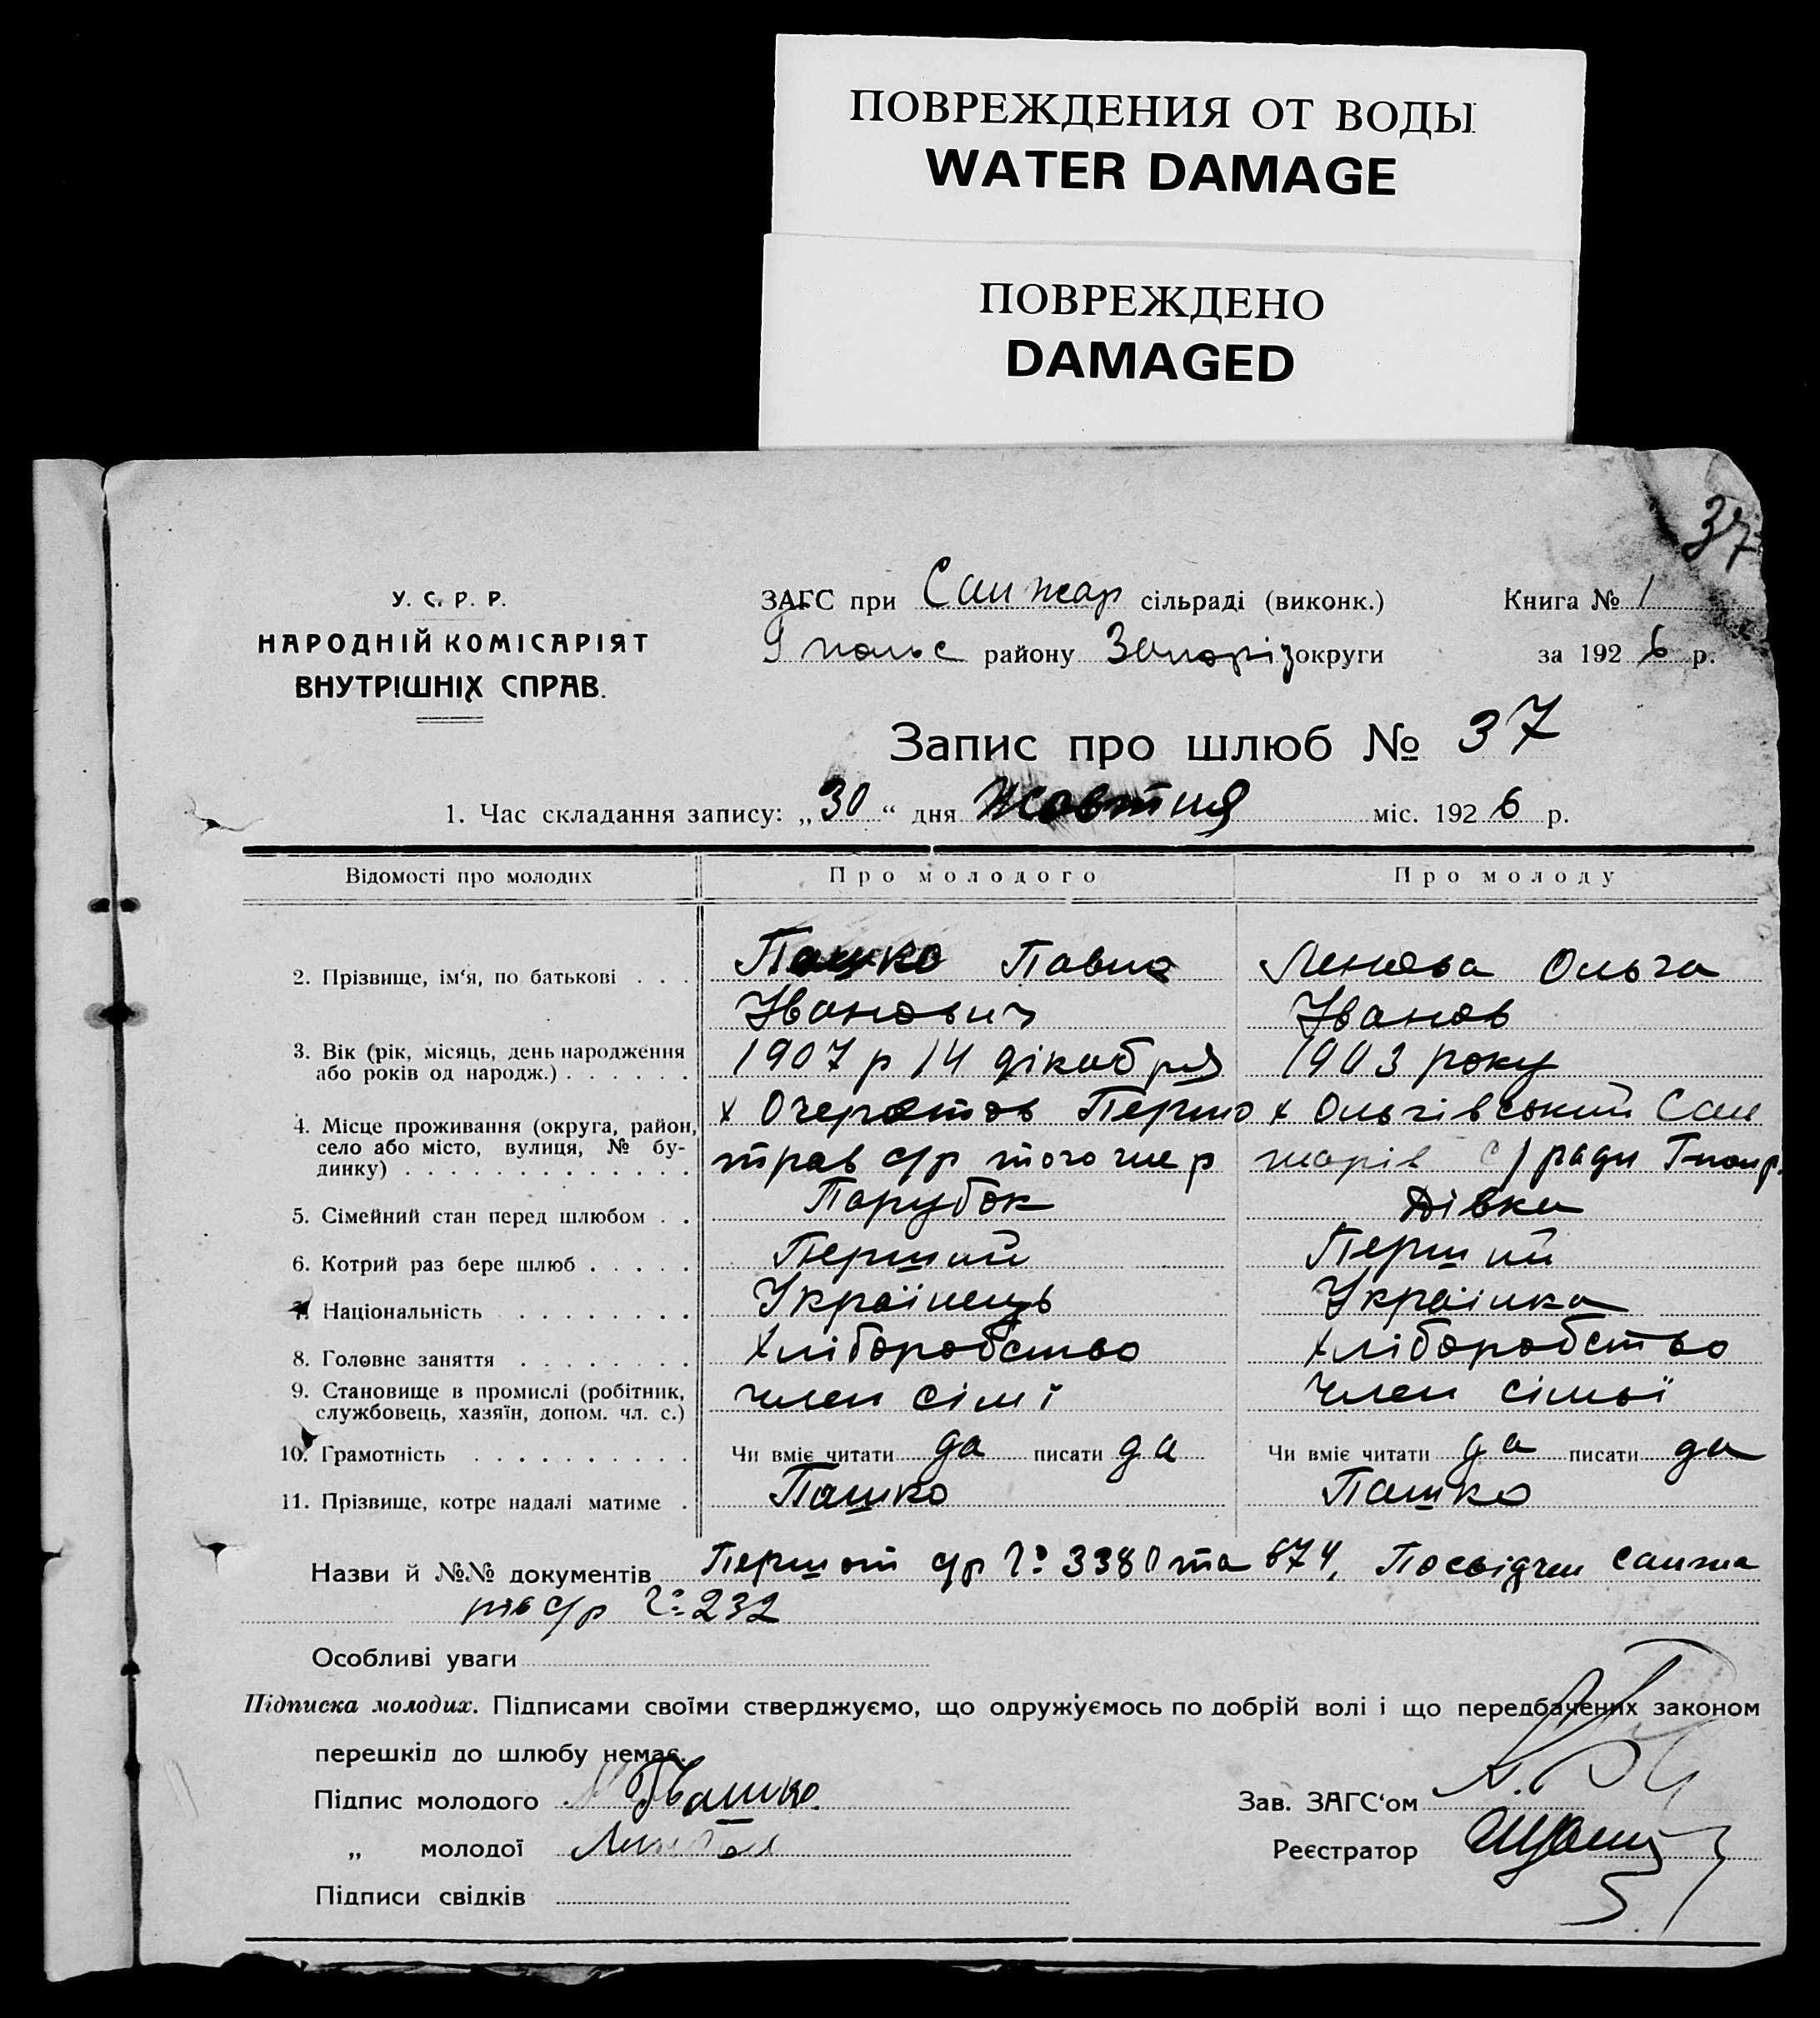 ПОВРЕЖДЕНИЯ ОТ ВОДЫ
WATER DAMAGE
ПОВРЕЖДЕНО
DAMAGED
37
У. С. Р. Р.
НАРОДНІЙ КОМІСАРІЯТ
ВНУТРІШНІХ СПРАВ.
ЗАГС при Санжар сільраді (виконк.)
Гпольс району Запоріз округи
Книга № 1
за 1926 р.
Запис про шлюб № 37
1. Час складання запису: „30“ дня Жовтня міс. 1926 р.
Відомості про молодих Про молодого Про молоду
2. Прізвище, ім'я, по батькові . . . Пашко Павло Ольга
Іванович Іванов
3. Вік (рік, місяць, день народження 1907 р 14 дікабря 1903 року
або років од народж.) . . . . . .
4. Місце проживання (округа, район, х Очеретов Першо х Ольгівський Сан
село або місто, вулиця, № бу- трав с/р того же р жарів с/ради Гпол р.
динку) . . . . . . . . . . . . .
5. Сімейний стан перед шлюбом . . Парубок Дівка
6. Котрий раз бере шлюб . . . . . Перший Перший
7. Національність . . . . . . . . Українець Українка
8. Головне заняття . . . . . . . . Хліборобство Хліборобство
9. Становище в промислі (робітник, член сімї член сімьї
службовець, хазяїн, допом. чл. с.)
10. Грамотність . . . . . . . . . . Чи вміє читати да писати да Чи вміє читати да писати да
11. Прізвище, котре надалі матиме . Пашко Пашко
Назви й №№ документів Першот с/р № 3380 та 674, Посвідчен Санжа
рів с/р № 232
Особливі уваги
Підписка молодих. Підписами своїми стверджуємо, що одружуємось по добрій волі і що передбачених законом
перешкід до шлюбу немає.
Підпис молодого Пашко
„ молодої
Підписи свідків
Зав. ЗАГС'ом
Реєстратор